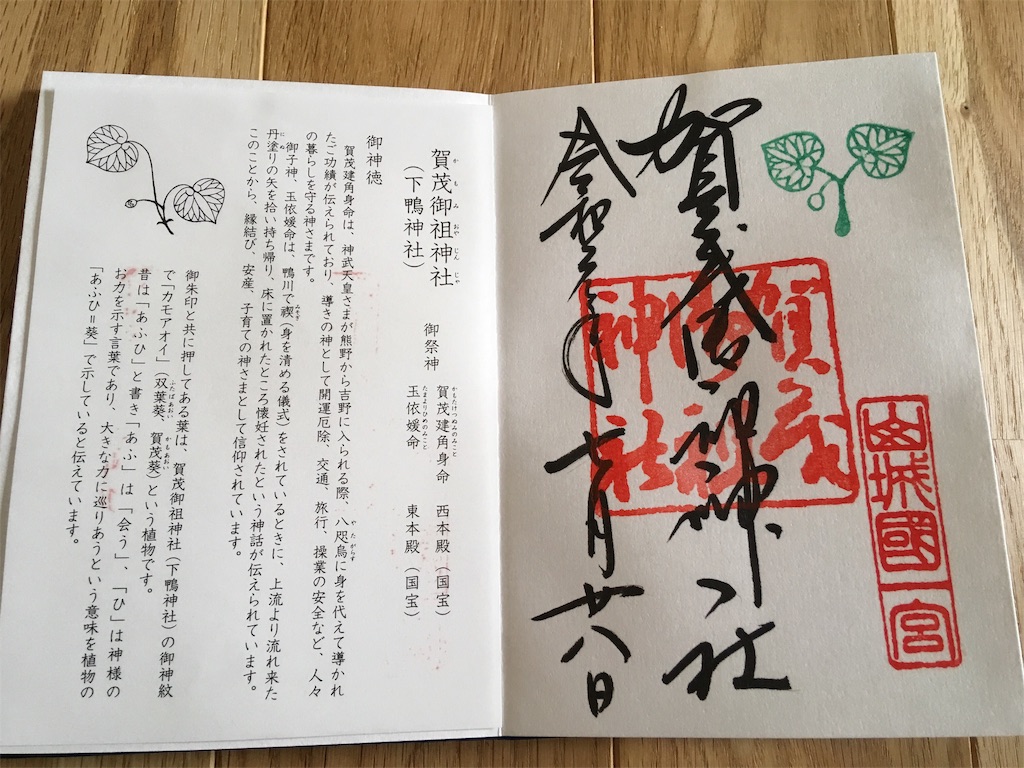 山城國一宮
賀茂御祖神社
賀茂御祖神社
令和元年七月廿八日
賀茂御祖神社
かもみおやじんじゃ
(下鴨神社)
御祭神
賀茂建角身命 西本殿(国宝)
かもたけつぬみのみこと
玉依媛命 東本殿(国宝)
たまよりひめのみこと
御神徳
賀茂建角身命は、神武天皇さまが熊野から吉野に入られる際、八咫烏に身を代えて導かれ
やたがらす
たご功績が伝えられており、導きの神として開運厄除、交通、旅行、操業の安全など、人々
の暮らしを守る神さまです。
御子神、玉依媛命は、鴨川で禊(身を清める儀式)をされているときに、上流より流れ来た
みそぎ
丹塗りの矢を拾い持ち帰り、床に置かれたところ懐妊されたという神話が伝えられています。
にぬ
このことから、縁結び、安産、子育ての神さまとして信仰されています。
御朱印と共に押してある葉は、賀茂御祖神社(下鴨神社)の御神紋
で「カモアオイ」(双葉葵、賀茂葵)という植物です。
ふたばあおい かもあおい
昔は「あふひ」と書き「あふ」は「会う」、「ひ」は神様の
お力を示す言葉であり、大きな力に巡りあうという意味を植物の
「あふひ=葵」で示していると伝えています。